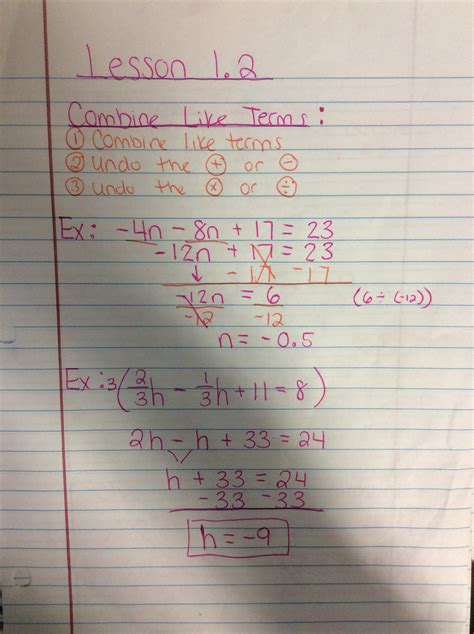 Lesson 1.2
Combine Like Terms:
① Combine like terms
② Undo the ⊕ or ⊖
③ Undo the ⊗ or ⊕
Ex: -4n - 8n + 17 = 23
-12n + 17 = 23
↓ - 17 -17
-12n = 6 (6 ÷ (-12))
-12 -12
n = -0.5
Ex: 3(2/3h - 1/3h + 11 = 8)
2h - h + 33 = 24
h + 33 = 24
-33 -33
h = -9